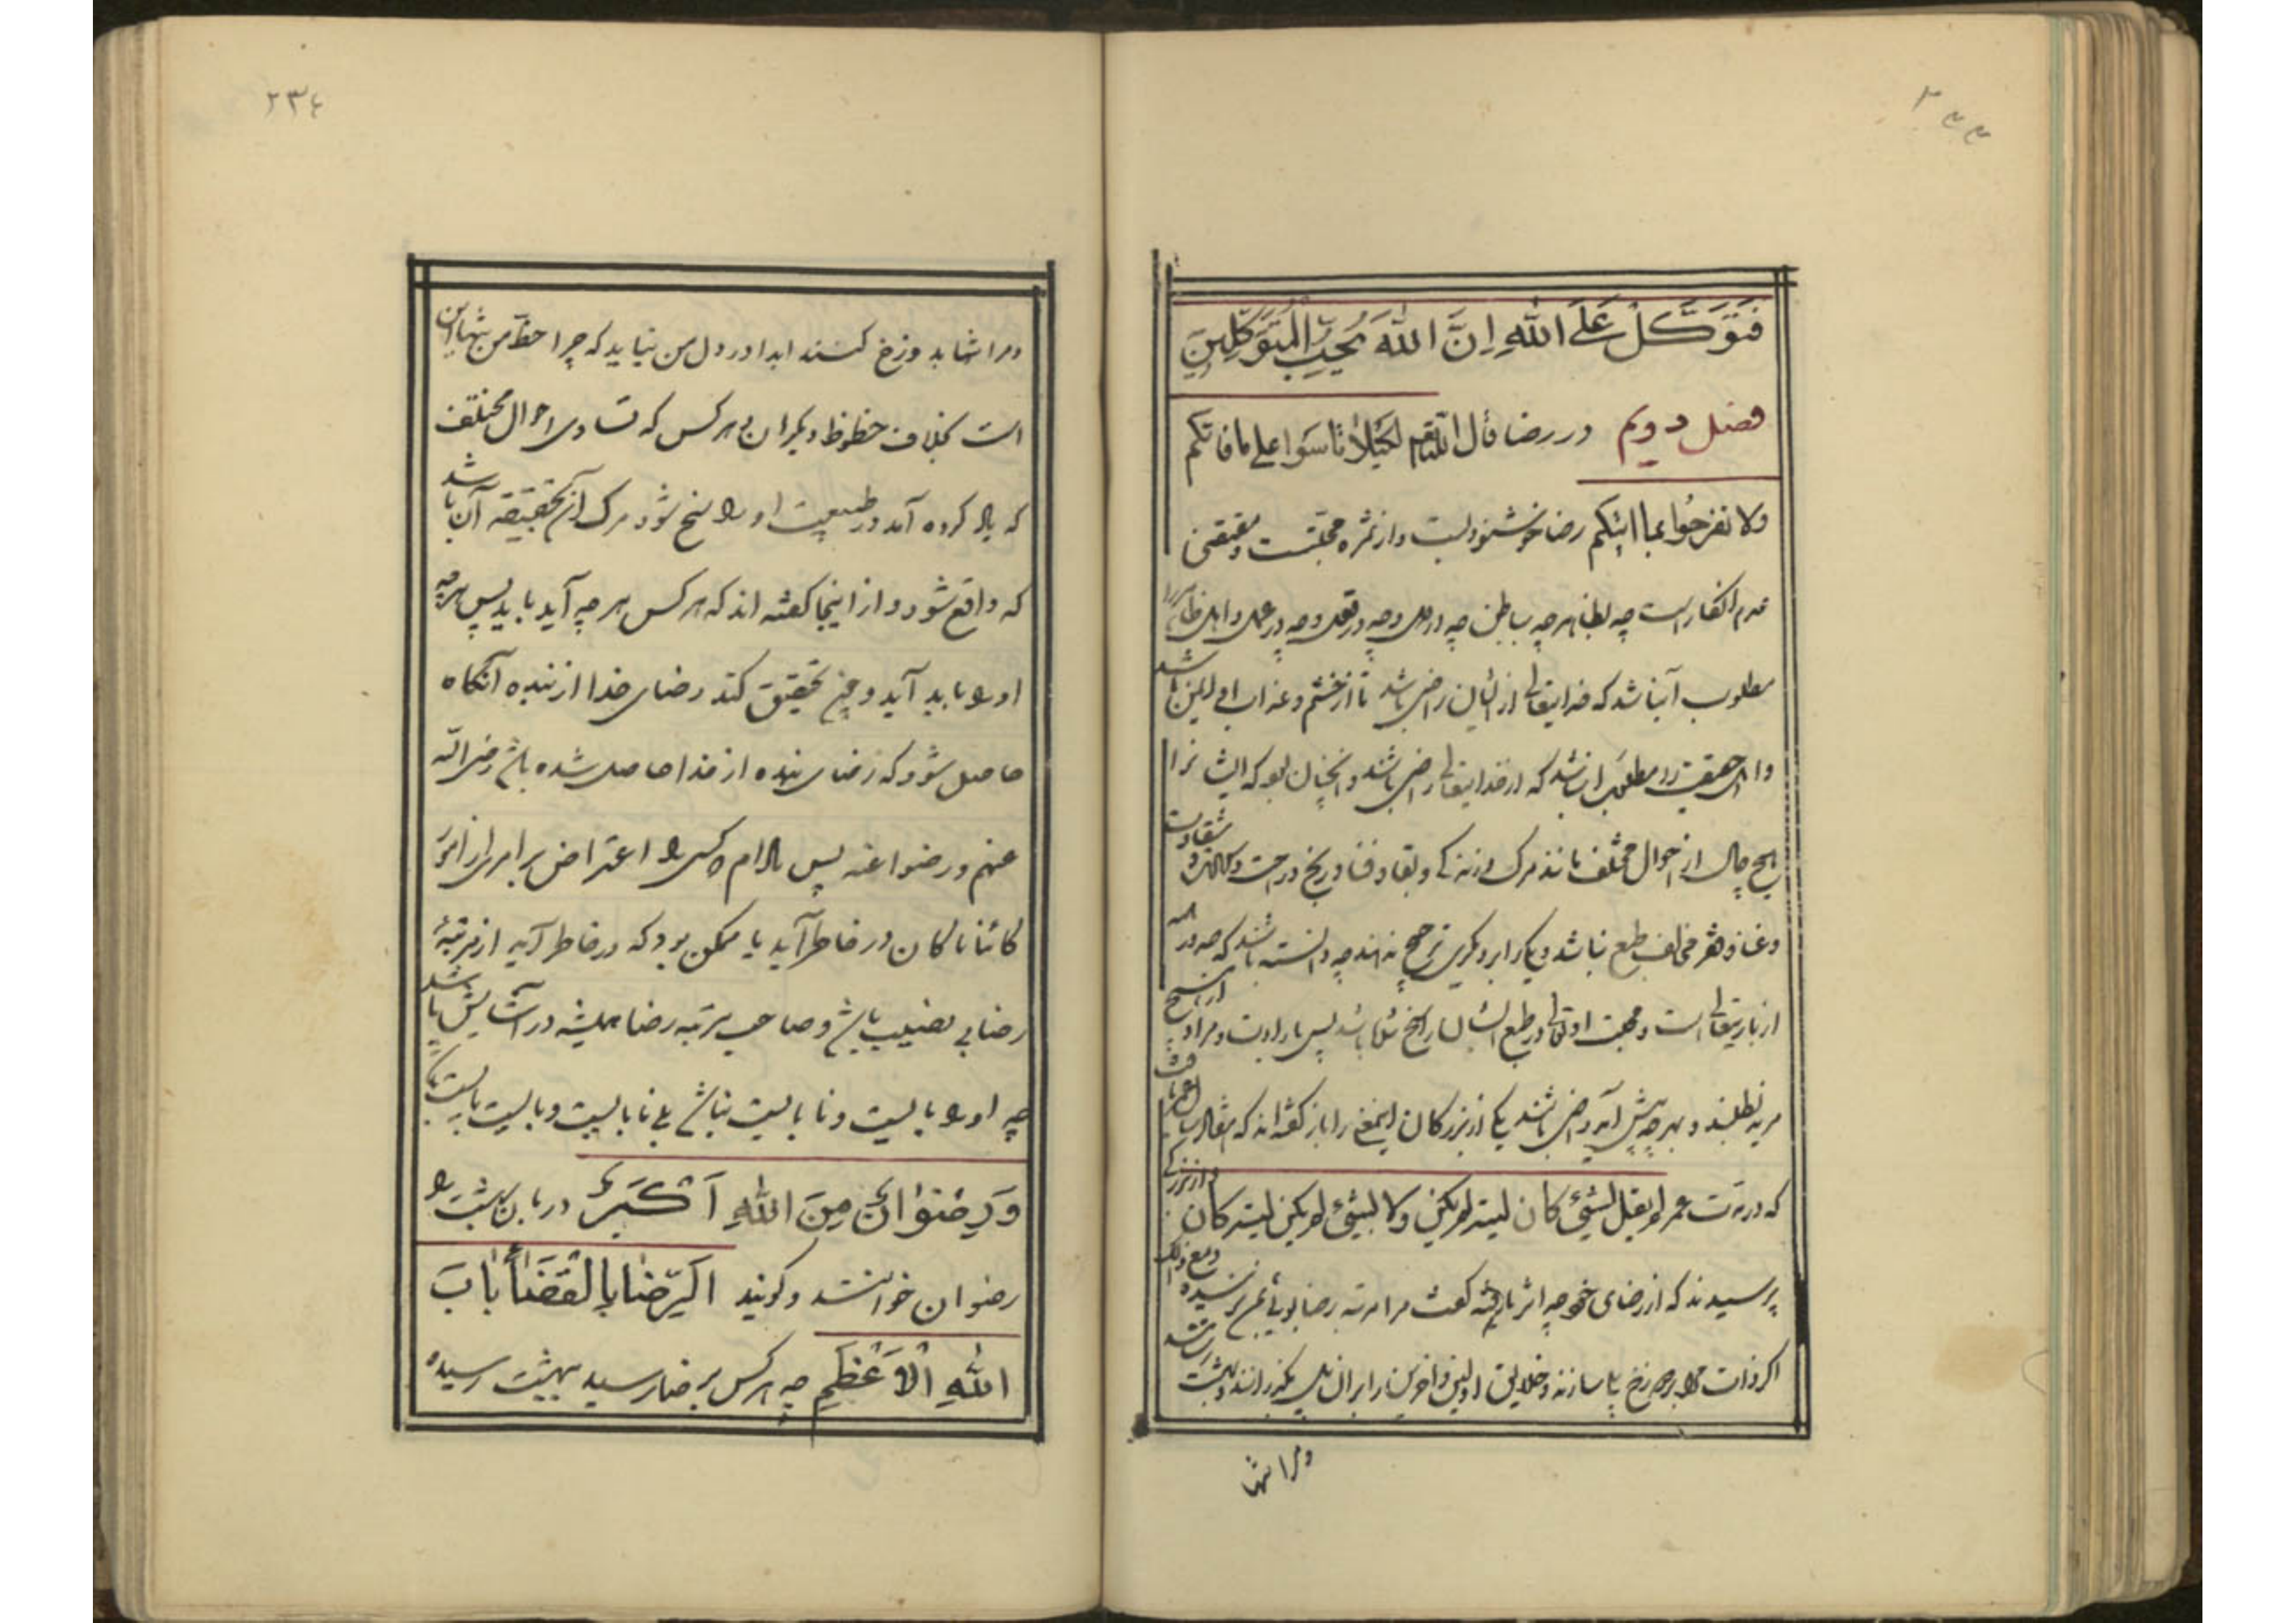 ٢٣٣
فَتَوَكَّلْ عَلَى اللهِ اِنَّ اللهَ يُحِبُّ الْمُتَوَكِّلِينَ
فصل دویم در رضا قال الله لکیلا تاسوا علی ما فاتکم
ولا تفرحوا بما اتیکم رضا خوشنودیست و از ثمره محبتست و مقتضی
عدم انکار است چه بظاهر چه بباطن چه در دل و چه در قول و چه در عمل و اهل ظاهر را
مطلوب آن باشد که خدایتعالی از ایشان راضی باشد تا از خشم و عذاب او ایمن باشند
و اهل حقیقت را مطلوب ان باشد که از خدایتعالی راضی باشند و آنچنان بود که ایشانرا
هیچ حال از احوال مختلف مانند مرگ و زندگی و بقا و فنا و رنج و راحت و سعادت و شقاوت
و غنا و فقر مخالف طبع نباشد و یکی را بر دیگری ترجیح ننهند چه دانسته باشند که صدور همه
از باریتعالی است و محبت او تعالی در طبع ایشان راسخ شده باشد پس بر ارادت و مراد او هیچ
مزید نطلبند و بهر چه پیش آید راضی باشند یکی از بزرگان اینمعنی را باز گفته اند که هفتاد سال عمر یافت
که در مدت عمر لم یقل لشیئ کان لیته لم یکن ولا لشیئ لم یکن لیته کان و از بزرگی
پرسیدند که از رضای خود چه اثر یافته گفت مرا مرتبه رضا بوئی نرسیده و مع ذلک
اگر ذات مرا بر دوزخ پلی سازند و خلایق اولین و آخرین را بر ان پل بگذرانند و ببهشت رسانند
و مرا تنها
٢٣٤
و مرا تنها بدوزخ کنند ابدا در دل من نیاید که چرا حظ من تنها این
است بخلاف حظوظ دیگران و هر کس که تساوی احوال مختلف
که یاد کرده آمد در طبیعت او راسخ شود مراد آن بحقیقه آن باشد
که واقع شود و از اینجا گفته اند که هر کس هر چه آید باید پس هر چه
او را باید آید و چون تحقیق کند رضای خدا از بنده آنگاه
حاصل شود که رضای بنده از خدا حاصل شده باشد رضی الله
عنهم و رضوا عنه پس مادام که کسی را اعتراض بر امری از امور
کائنا ما کان در خاطر آید یا ممکن بود که در خاطر آید از مرتبهٔ
رضا بی نصیب باشد و صاحب مرتبه رضا همیشه در آسایش باشد
چه او را بایست و نابایست نباشد بلی نابایست و بایست
وَرِضْوَانٌ مِنَ اللهِ اَكْبَرُ دربان بهشت را
رضوان خوانند و گویند اَلرِّضَا بِالْقَضَاءِ بَابَ
اللهِ الْاَعْظَمِ چه هر کس برضا رسید ببهشت رسیده